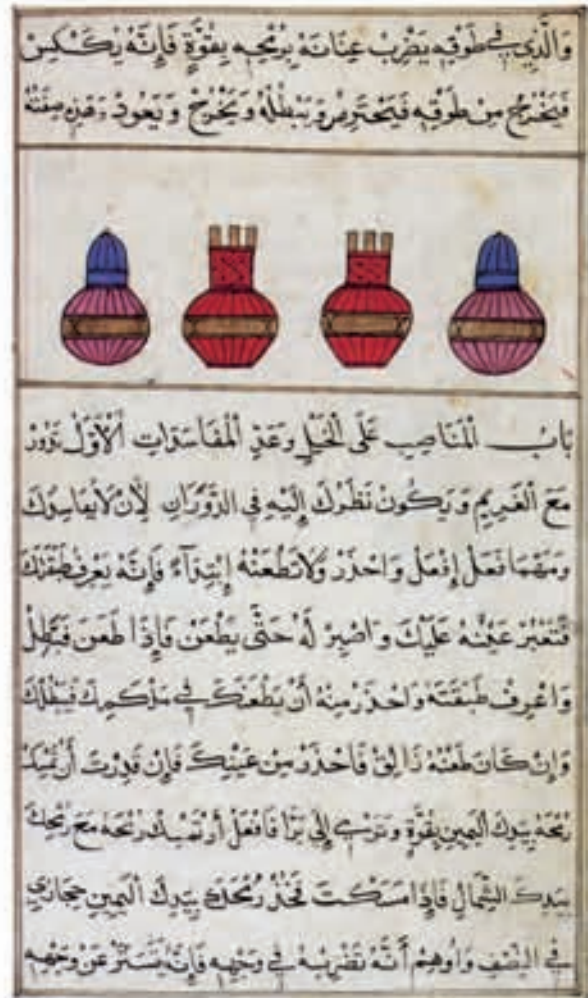 وَالَّذِي فِي طَوْقِهِ يَضْرِبُ عِنَانَهُ بِرُمْحِهِ بِقُوَّةٍ فَإِنَّهُ يَنْكَسِرُ
فَيَخْرُجُ مِنْ طَوْقِهِ فَيَحْتَرِصُ وَيُبْطِلُهُ وَيَخْرُجُ وَيَعُودُ وَهَذِهِ صِفَتُهُ
بَابُ الْمَنَاصِبِ عَلَى الْخَيْلِ وَعَدَدِ الْمُقَاسَدَاتِ الْأَوَّلُ تَدُورُ
مَعَ الْغَرِيمِ وَيَكُونُ نَظَرُكَ إِلَيْهِ فِي الدَّوَرَانِ لِأَنْ لَا
وَمَهْمَا فَعَلَ إِفْعَلْ وَاحْذَرْ وَلَا تَطْعَنْهُ إِبْتِدَآءً فَإِنَّهُ يَعْرِفُ طَبَقَتَكَ
عَيْنُهُ عَلَيْكَ وَاصْبِرْ لَهُ حَتَّى يَطْعَنَ فَإِذَا طَعَنَ فَبَطِّلْ
وَاعْرِفْ طَبَقَتَهُ وَاحْذَرْ مِنْهُ أَنْ يَطْعَنَكَ فِي
وَإِنْ كَانَ طَعْنُهُ فَاحْذَرْ مِنْ عَيْنِكَ فَإِنْ قَدِرْتَ أَنْ تَمْسِكَ
رُمْحَهُ بِيَدِكَ الْيَمِينِ بِقُوَّةٍ وَتَرْمِي إِلَى بَرَّا فَافْعَلْ أَوْ تَمْسِكَ رُمْحَهُ مَعَ رُمْحِكَ
بِيَدِكَ الشِّمَالِ فَإِذَا مَسَكْتَ فَخُذْ رُمْحَكَ بِيَدِكَ الْيَمِينِ حِجَازِي
فِي النِّصْفِ وَاوْهِمْ أَنَّهُ تَضْرِبُهُ فِي وَجْهِهِ فَإِنَّهُ يَسْتَتِرُ عَنْ وَجْهِهِ